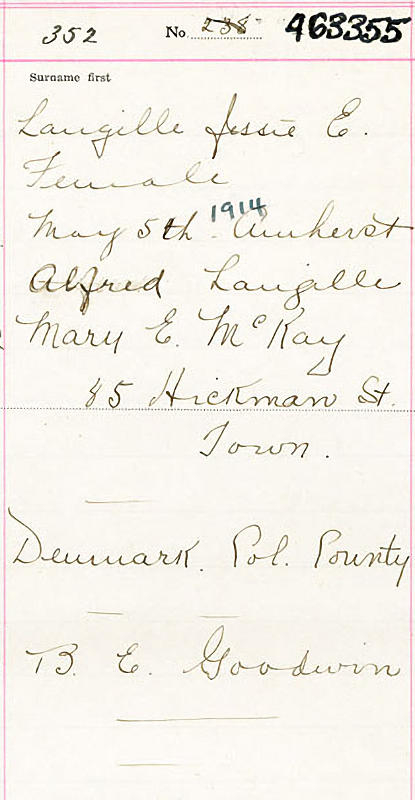 352 No 238 463355
Surname first
Langille Jessie E.
Female
May 5th 1914 Amherst
Alfred Langille
Mary E. McKay
85 Hickman St.
Town.
Denmark. Col. County
B. E. Goodwin